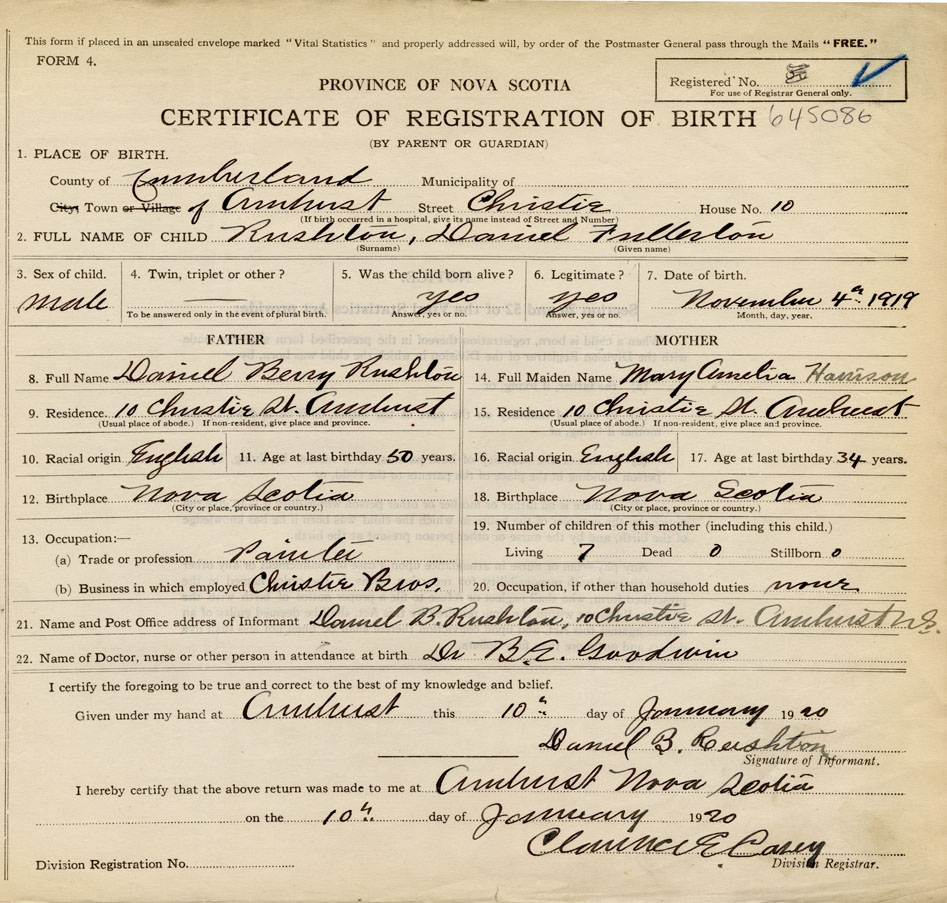 This form if placed in an unsealed envelope marked "Vital Statistics" and properly addressed will, by order of the Postmaster General pass through the Mails "FREE."
FORM 4.
Registered No.
For use of Registrar General only.
PROVINCE OF NOVA SCOTIA
CERTIFICATE OF REGISTRATION OF BIRTH 645086
(BY PARENT OR GUARDIAN)
1. PLACE OF BIRTH.
County of Cumberland Municipality of
City, Town or Village of Amherst Street Christie House No. 10
(If birth occurred in a hospital, give its name instead of Street and Number)
2. FULL NAME OF CHILD Rushton, Daniel Fullerton
(Surname) (Given name)
3. Sex of child. 4. Twin, triplet or other? 5. Was the child born alive? 6. Legitimate? 7. Date of birth.
male yes yes November 4th 1919
To be answered only in the event of plural birth. Answer, yes or no. Answer, yes or no. Month, day, year.
FATHER MOTHER
8. Full Name Daniel Berry Rushton 14. Full Maiden Name Mary Amelia Harrison
9. Residence. 10 Christie St. Amherst 15. Residence 10 Christie St. Amherst
(Usual place of abode.) If non-resident, give place and province. (Usual place of abode.) If non-resident, give place and province.
10. Racial origin English 11. Age at last birthday 50 years. 16. Racial origin English 17. Age at last birthday 34 years.
12. Birthplace Nova Scotia 18. Birthplace Nova Scotia
(City or place, province or country.) (City or place, province or country.)
13. Occupation:— 19. Number of children of this mother (including this child.)
(a) Trade or profession Painter Living 7 Dead 0 Stillborn 0
(b) Business in which employed Christie Bros. 20. Occupation, if other than household duties none
21. Name and Post Office address of Informant Daniel B. Rushton, 10 Christie St. Amherst N.S.
22. Name of Doctor, nurse or other person in attendance at birth Dr B.E. Goodwin
I certify the foregoing to be true and correct to the best of my knowledge and belief.
Given under my hand at Amherst this 10th day of January 1920
Daniel B. Rushton
Signature of Informant.
I hereby certify that the above return was made to me at Amherst Nova Scotia
on the 10th day of January 1920
Clarence E. Casey
Division Registration No. Division Registrar.